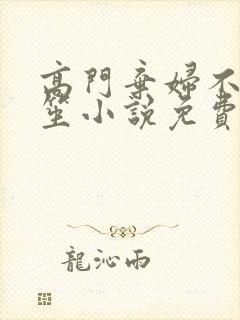 高門棄婦不
笙小說免費
龍沁雨